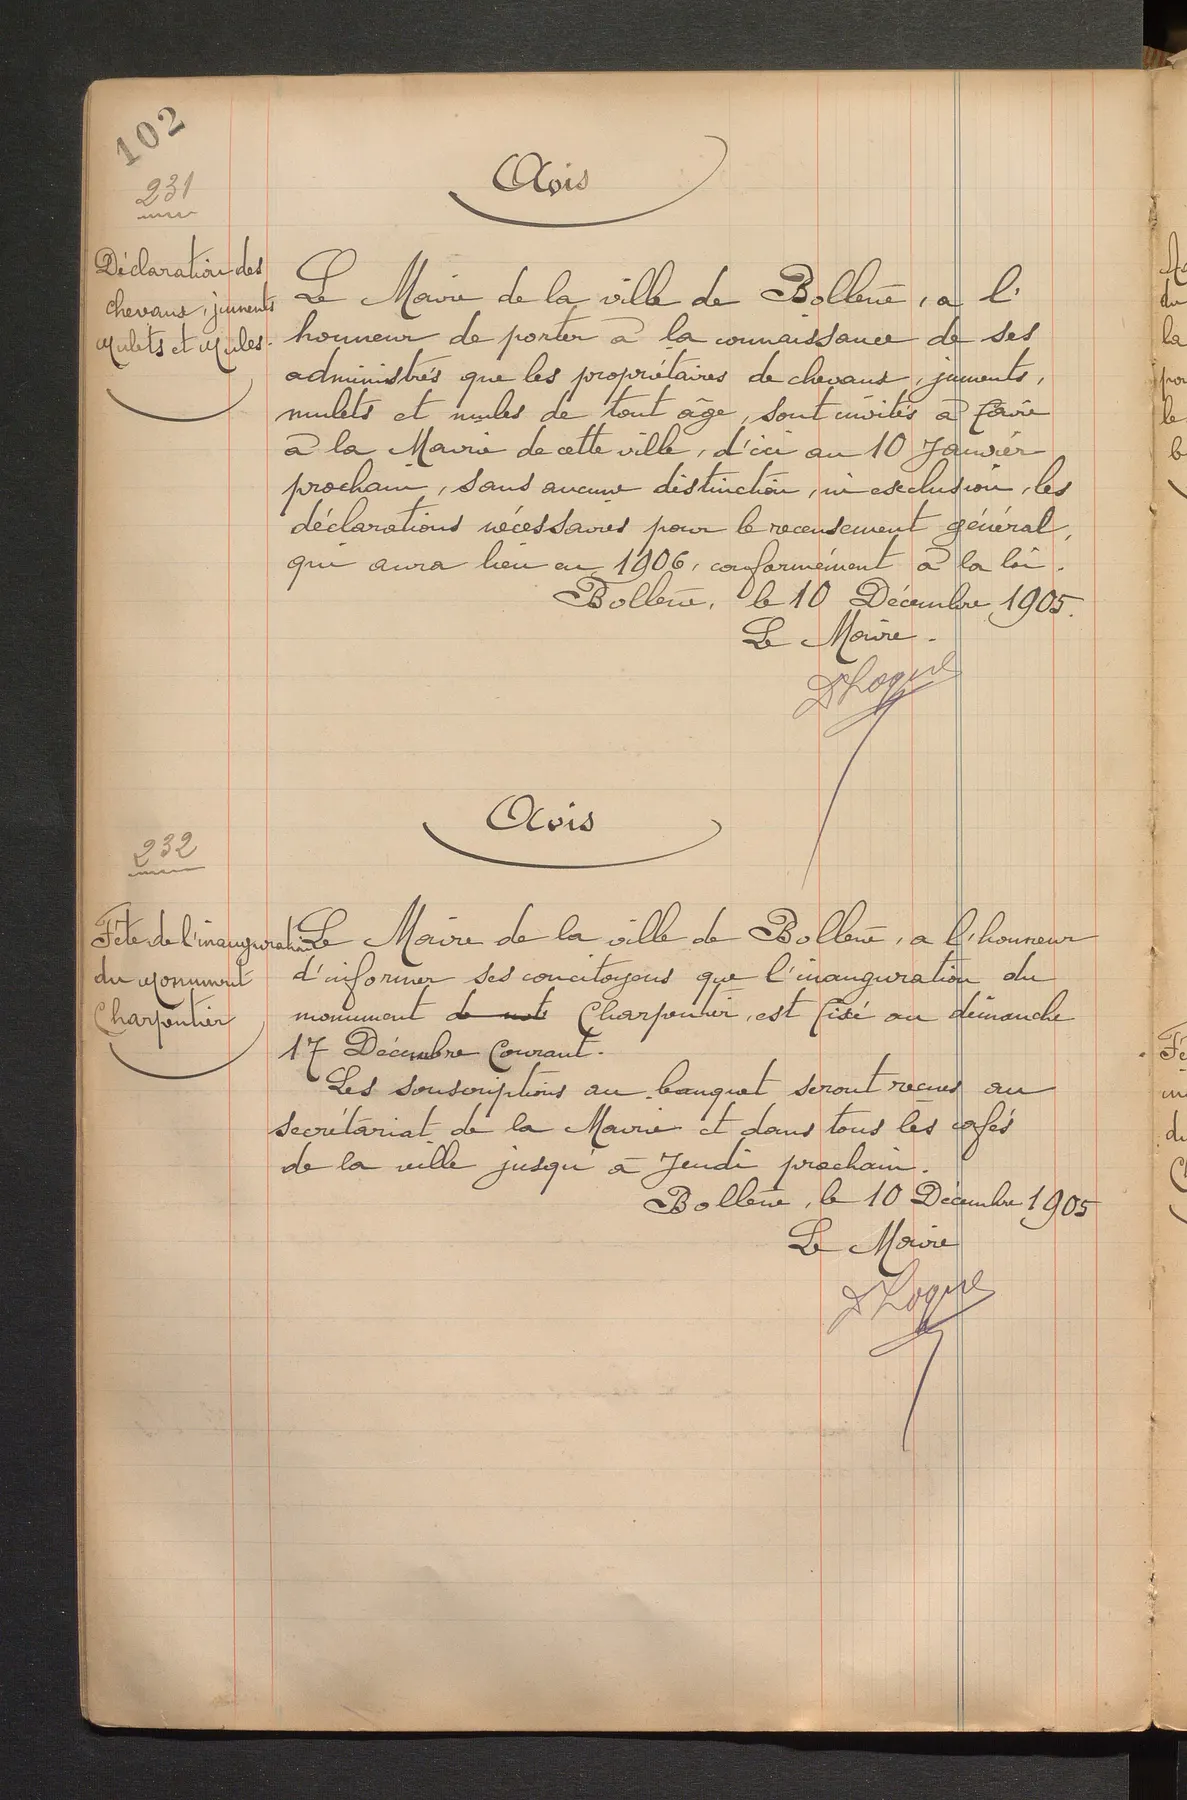 102
231
Avis
Déclaration des
chevaux, juments
mulets et mules.
Le Maire de la ville de Bollène, a l'
honneur de porter à la connaissance de ses
administrés que les propriétaires de chevaux, juments,
mulets et mules de tout âge, sont invités à faire
à la Mairie de cette ville, d'ici au 10 Janvier
prochain, sans aucune distinction, ni exclusion, les
déclarations nécessaires pour le recensement général,
qui aura lieu en 1906, conformément à la loi.
Bollène, le 10 Décembre 1905.
Le Maire.
232
Avis
Fête de l'inauguration
du Monument
Charpentier
Le Maire de la ville de Bollène, a l'honneur
d'informer ses concitoyens que l'inauguration du
monument de Charpentier, est fixé au dimanche
17 Décembre Courant.
Les souscriptions au banquet seront reçues au
secrétariat de la Mairie et dans tous les cafés
de la ville jusqu'à Jeudi prochain.
Bollène, le 10 Décembre 1905
Le Maire